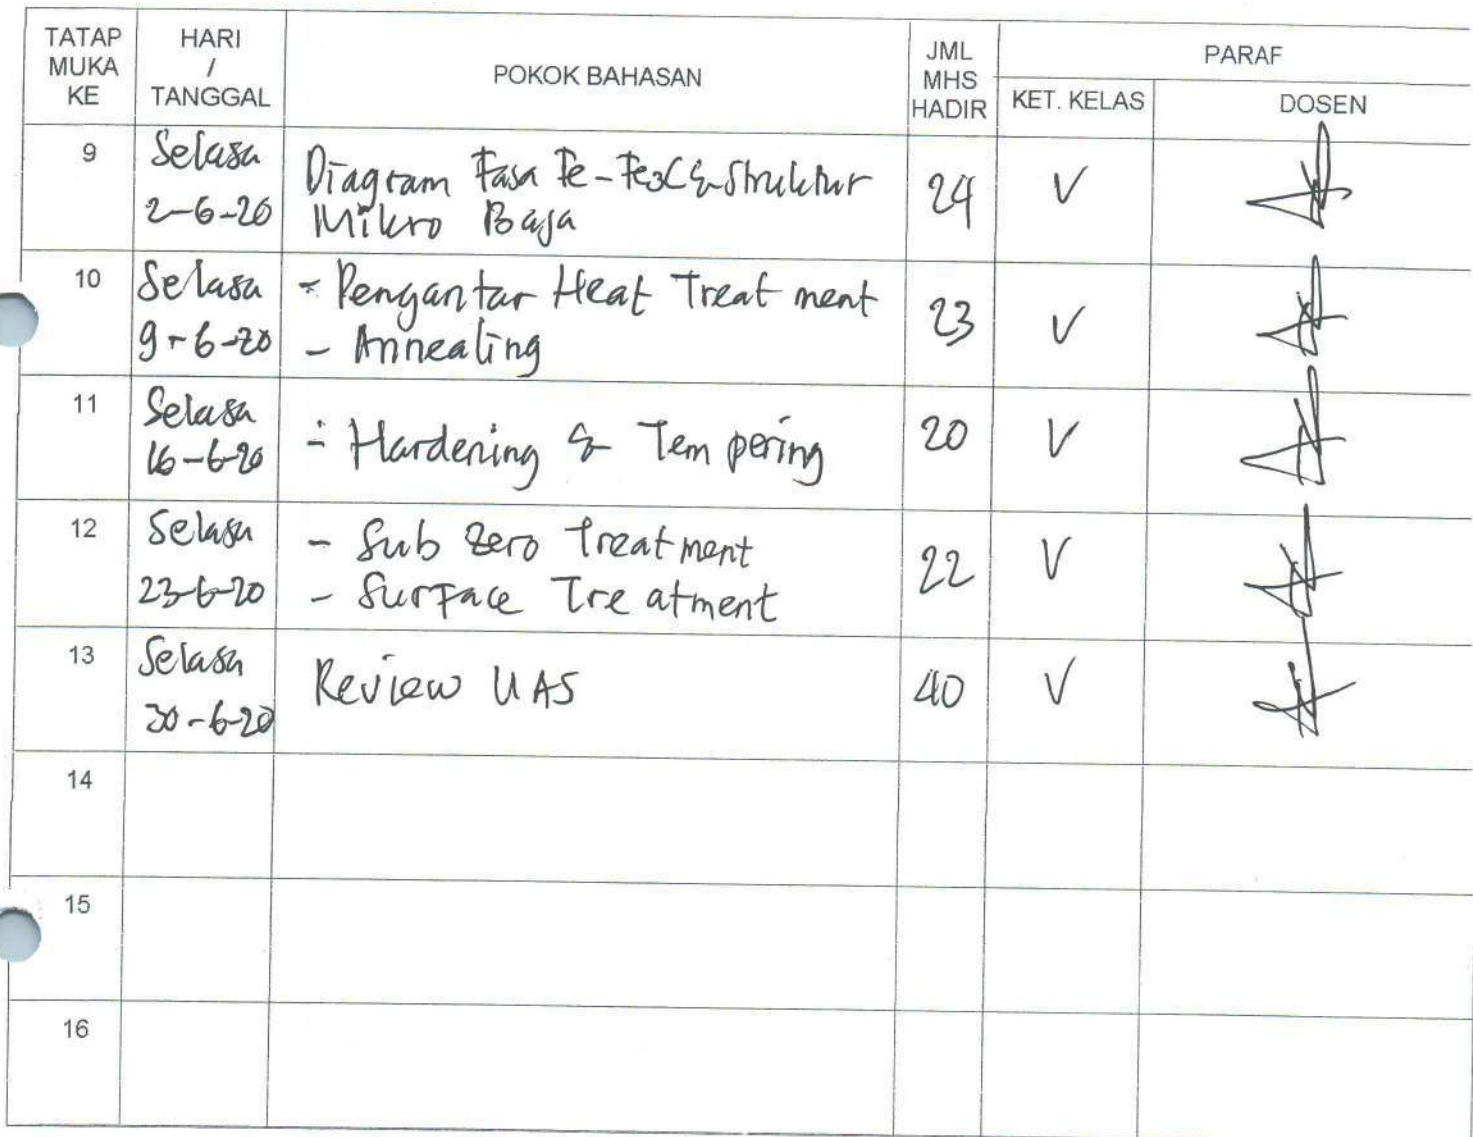 TATAP MUKA KE
HARI / TANGGAL
POKOK BAHASAN
JML MHS HADIR
PARAF
KET. KELAS
DOSEN
9
Selasa
2-6-20
Diagram Fasa Fe-Fe3C & Struktur
Mikro Baja
24
V
10
Selasa
9-6-20
- Pengantar Heat Treatment
- Annealing
23
V
11
Selasa
16-6-20
- Hardening & Tempering
20
V
12
Selasa
23-6-20
- Sub Zero Treatment
- Surface Treatment
22
V
13
Selasa
30-6-20
Review UAS
40
V
14
15
16